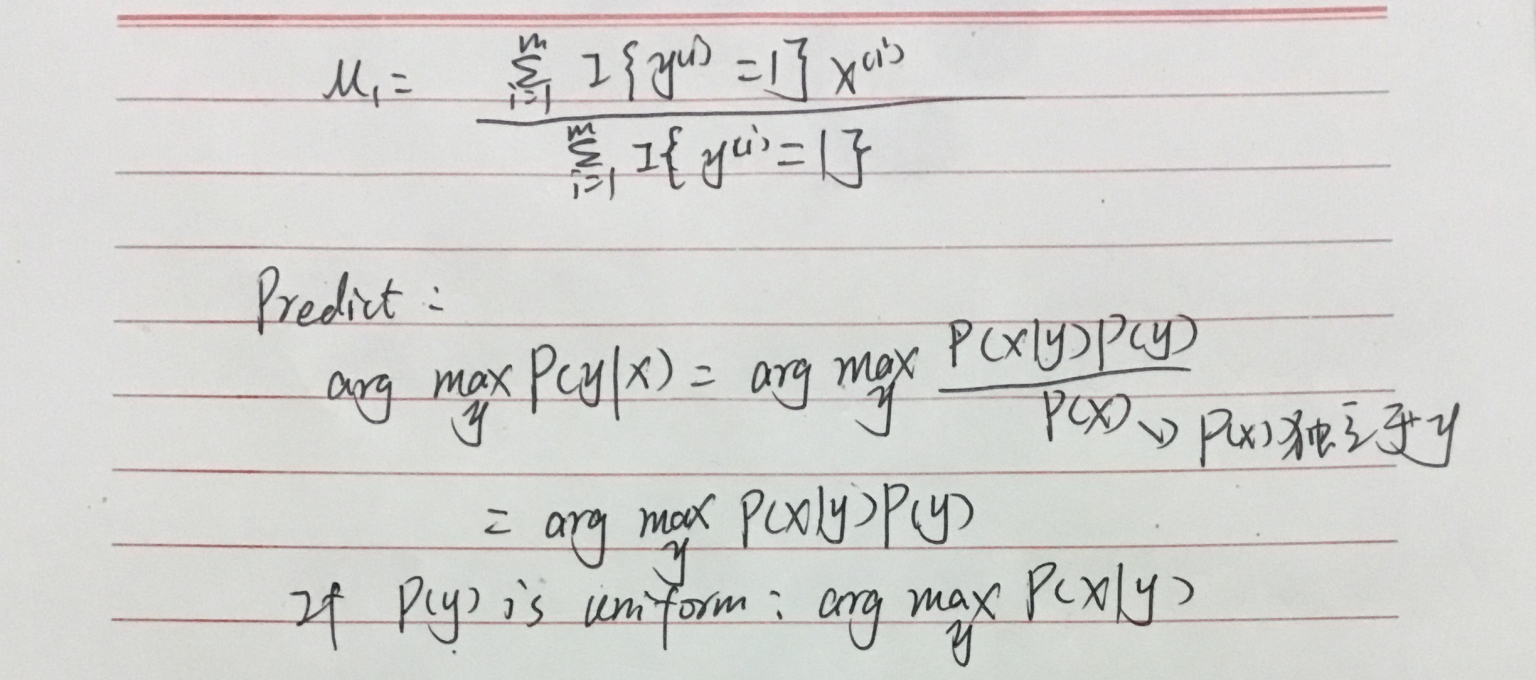 μ₁ = \frac{\sum_{i=1}^{m} I\{y^{(i)} = 1\} x^{(i)}}{\sum_{i=1}^{m} I\{y^{(i)} = 1\}}
Predict:
arg max_y P(y|x) = arg max_y \frac{P(x|y)P(y)}{P(x)} ↘ P(x)独立于y
= arg max_y P(x|y)P(y)
If P(y) is uniform: arg max_y P(x|y)